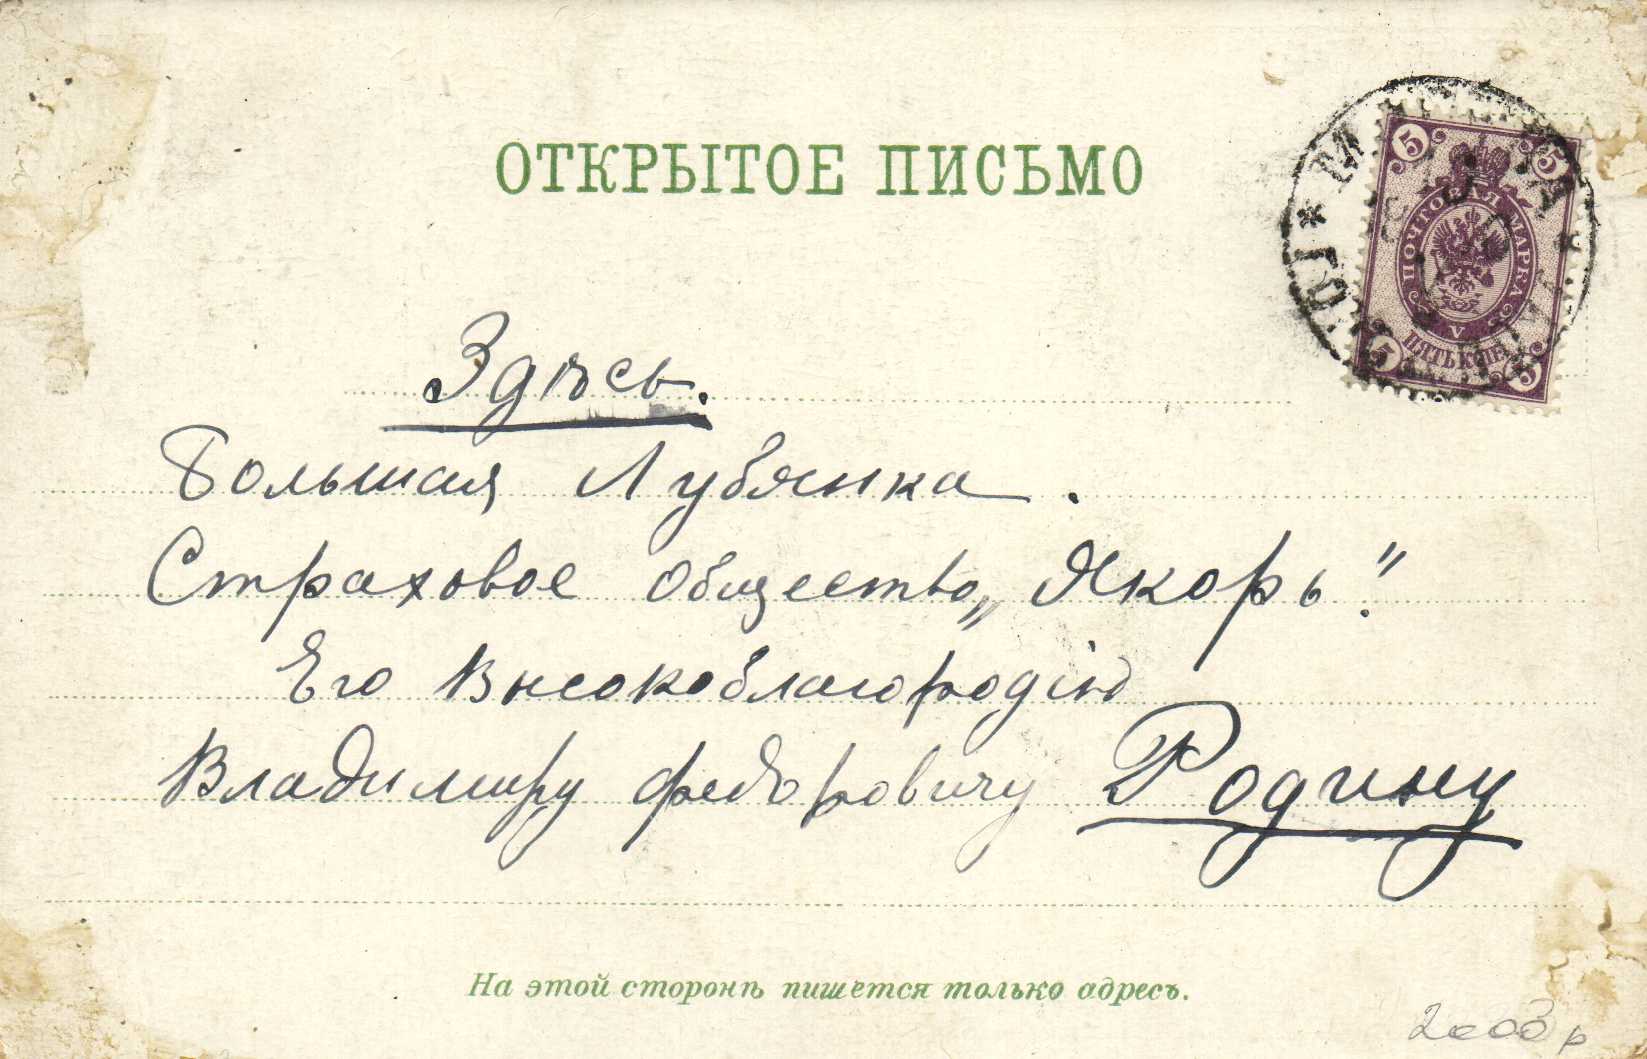 ОТКРЫТОЕ ПИСЬМО
5 5
ПОЧТОВАЯ МАРКА
V
ПЯТЬ КОП
5 5
Здѣсь.
Большая Лубянка.
Страховое общество „Якорь".
Его Высокоблагородію
Владимиру Федоровичу Родину
На этой сторонѣ пишется только адресъ.
2000 р